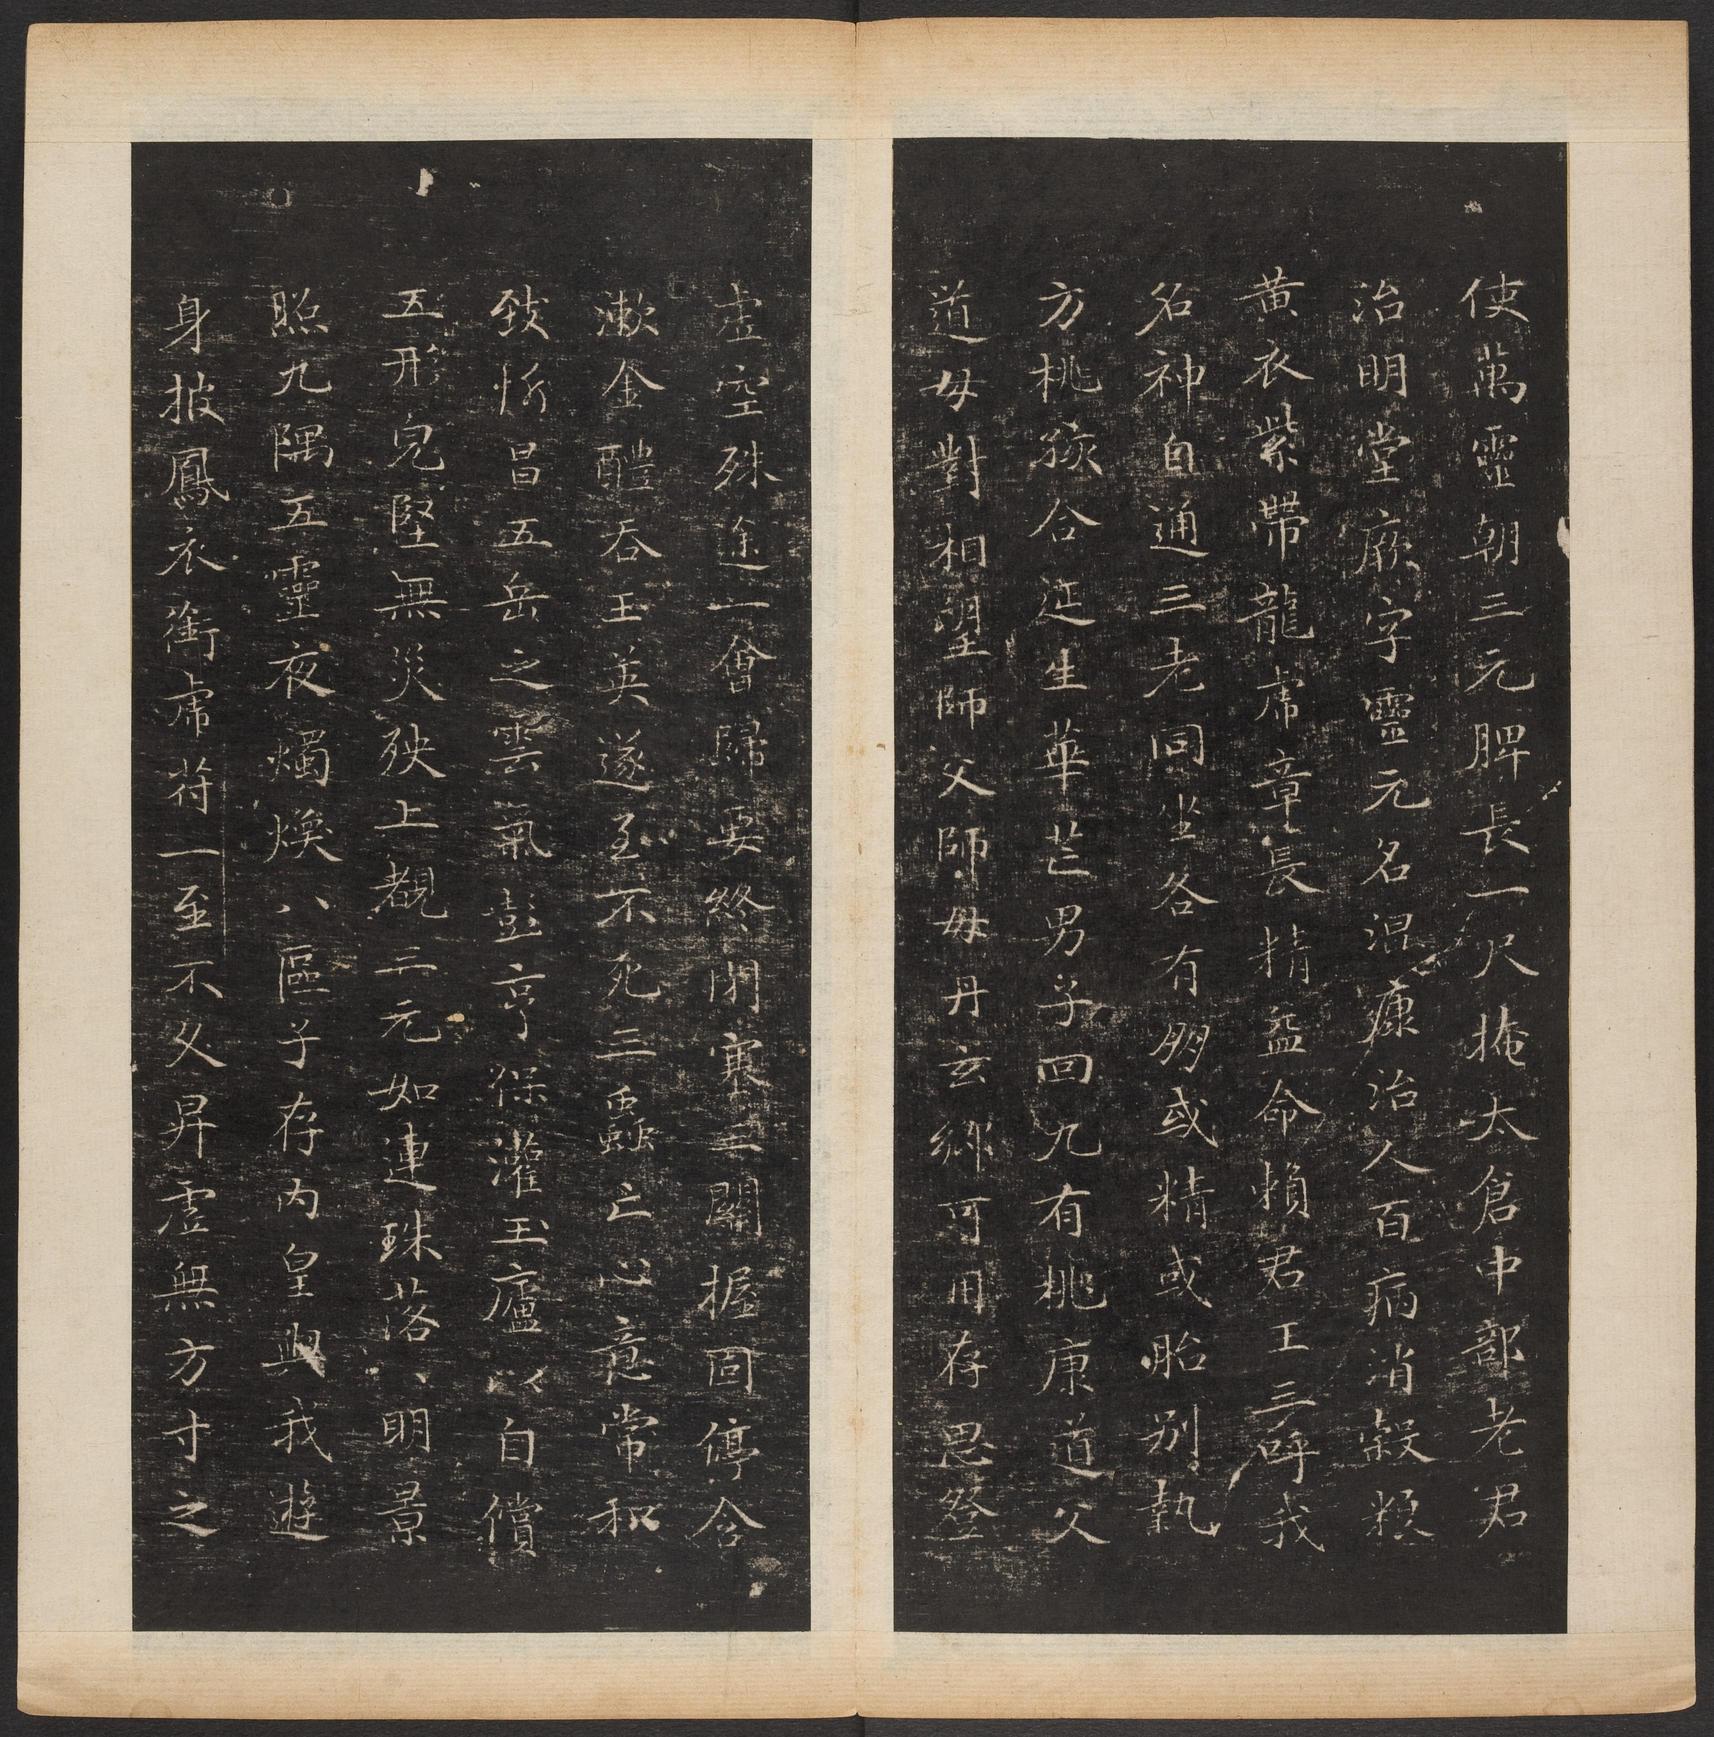 使萬靈朝三元脾長一尺掩太倉中部老君
治明堂厥字靈元名混康治人百病消穀粮
黃衣紫帶龍虎章長精益命賴君王三呼我
名神自通三老同坐各有朋或精或胎別執
方桃孩合延生華芒男子回九有桃康道父
道母對相望師父師母丹玄鄉可用存思登
虛空殊途一會歸要終閉塞三關握固停含
漱金醴吞玉英遂至不死三蟲亡心意常和
致忻昌五岳之雲氣彭亨保灌玉廬以自償
五形完堅無災殃上覩三元如連珠落落明景
照九隅五靈夜燭煥八區子存內皇與我遊
身披鳳衣銜虎符一至不久昇虛無方寸之